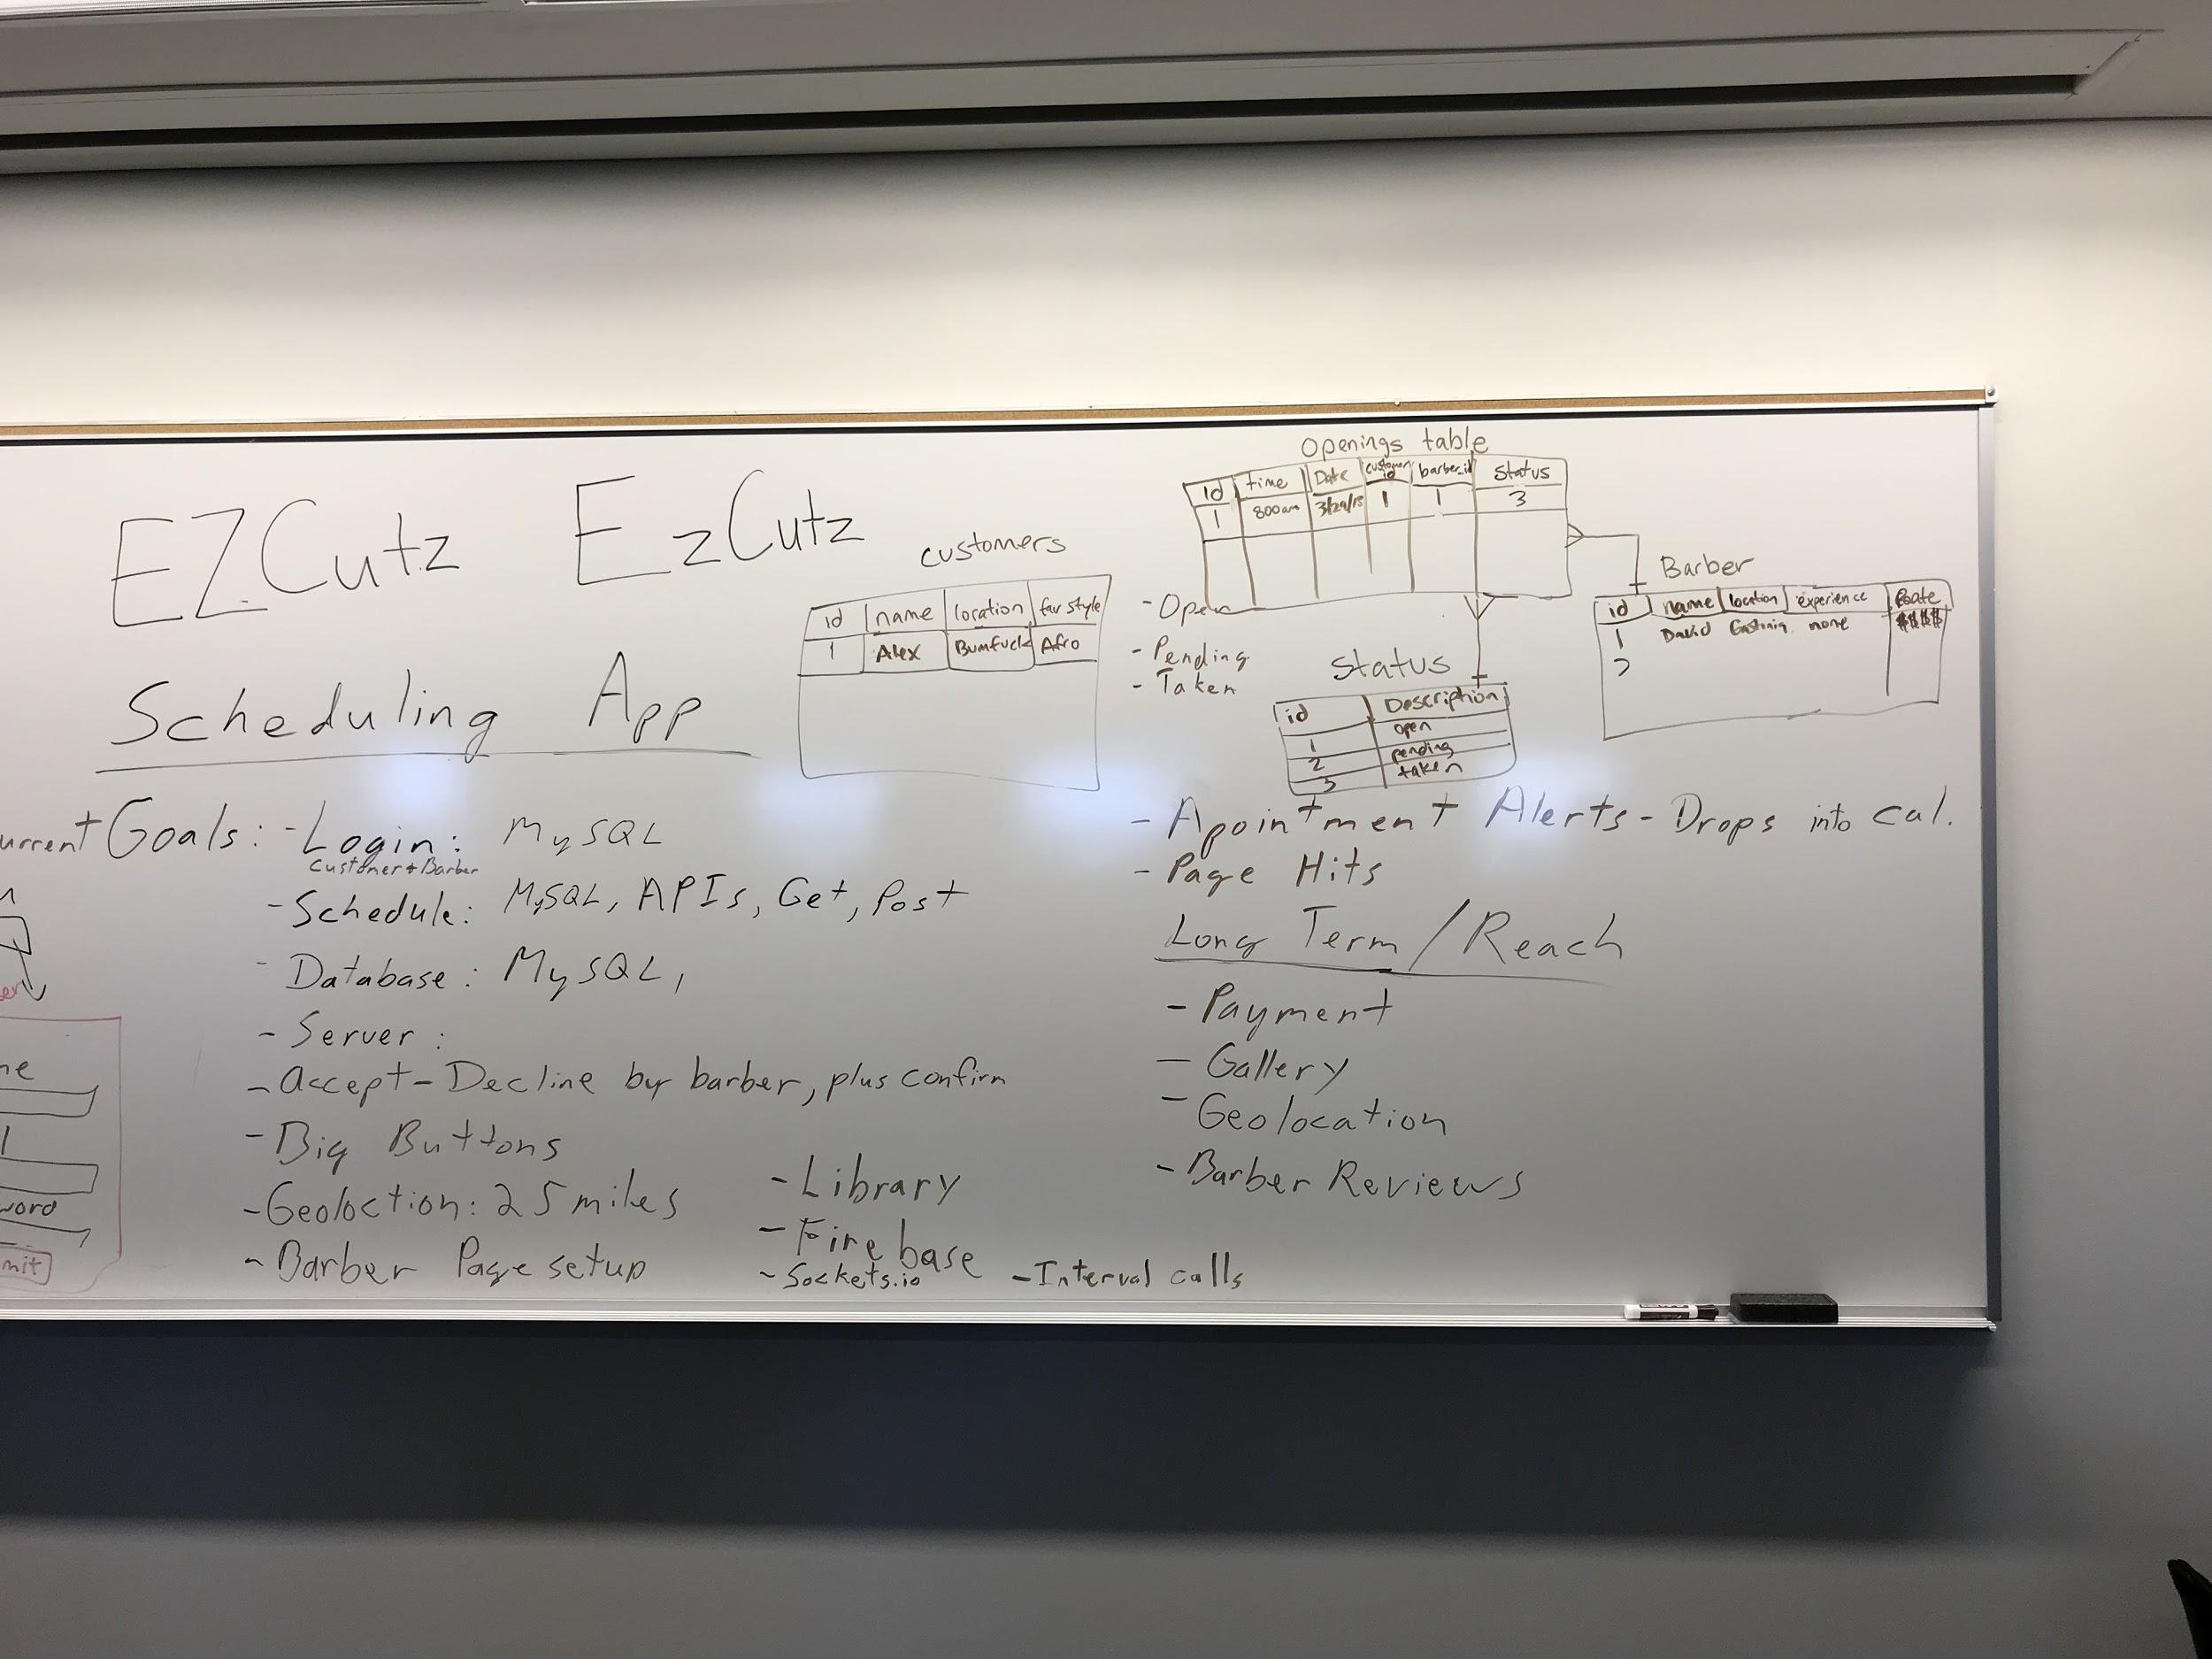 EZCutz EzCutz
Scheduling App
customers
id name location fav style
1 Alex Bumfuck Afro
Openings table
id time Date customer id barber_id status
1 800am 3/29/18 1 1 3
- Open
- Pending
- Taken
Status
id Description
open
1 pending
2 taken
3
Barber
id name location experience Rate
1 David Gastonia none $$$$
2
Goals: - Login: MySQL
Customer + Barber
- Schedule: MySQL, APIs, Get, Post
- Database: MySQL,
- Server:
- Accept - Decline by barber, plus confirm
- Big Buttons
- Geoloction: 25 miles
- Barber Page setup
- Library
- Firebase
- Sockets.io
- Interval calls
- Apointment Alerts - Drops into cal.
- Page Hits
Long Term / Reach
- Payment
- Gallery
- Geolocation
- Barber Reviews